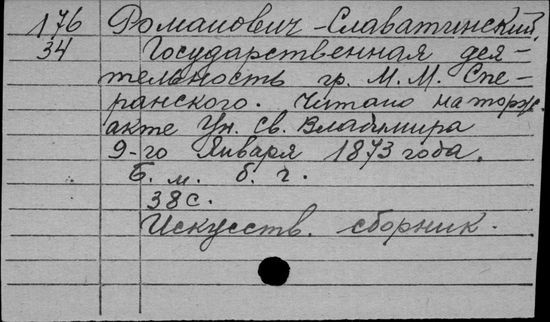 176 Романович-Славатинский.
34 Государственная дея-
тельность гр. М. М. Спе-
ранского. Читано на торж.
акте Ун. Св. Владимира
9-го Января 1873 года.
Б. м. б. г.
38 с.
Искусств. сборник.